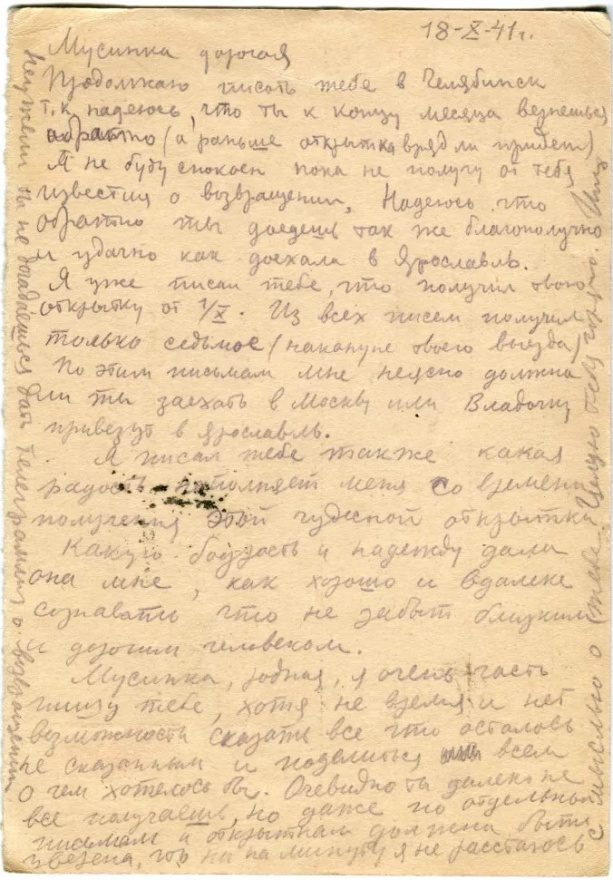 18-X-41г.
Мусинка дорогая
Продолжаю писать тебе в Челябинск
т.к. надеюсь, что ты к концу месяца вернешься
обратно (а раньше открытка вряд ли придет)
Я не буду спокоен пока не получу от тебя
известия о возвращении. Надеюсь что
обратно ты доедешь так же благополучно
и удачно как доехала в Ярославль.
Я уже писал тебе, что получил твою
открытку от 1/X. Из всех писем получил
только седьмое (накануне твоего выезда)
По этим письмам мне неясно должна
ли ты заехать в Москву или Владочку
привезут в Ярославль.
Я писал тебе также какая
радость наполняет меня со времени
получения этой чудесной открытки
Какую бодрость и надежду дала
она мне, как хорошо и вдалеке
сознавать что не забыт близким
и дорогим человеком.
Мусинка, родная, я очень часто
пишу тебе, хотя не время и нет
возможности сказать все что осталось
не сказанным и поделиться всем
о чем хотелось бы. Очевидно ты далеко не
все получаешь, но даже по отдельным
письмам и открыткам должна быть
уверена, что ни на минуту я не расстаюсь
с мыслью о тебе. Целую тебя горячо.
Неужели ты не догадаешься дать телеграмму о возвращении